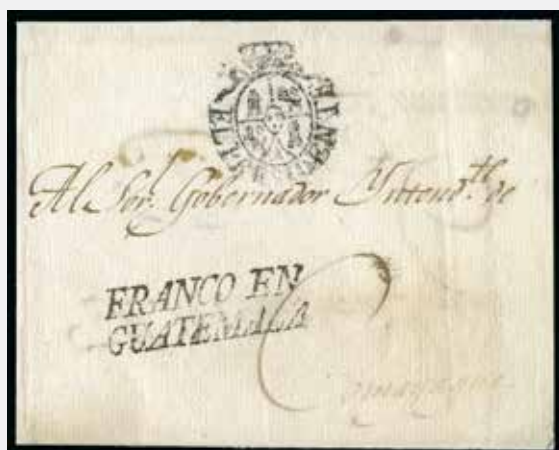 Al Sor. Gobernador Yntend.te de
FRANCO EN
GUATEMALA
Comayagua